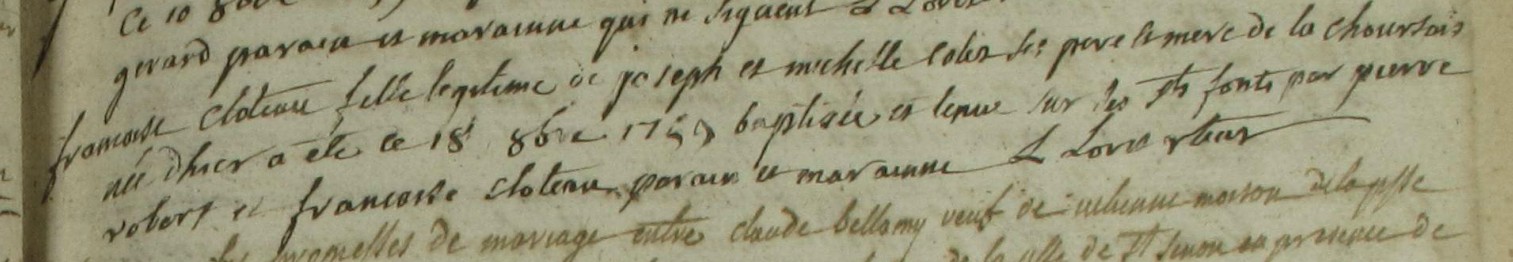 ce 10 8bre
gerard parain et marainne qui ne signent
francoise cloteau fille legitime de joseph et michelle colet ses pere et mere de la chourtais
née dhier a été ce 18 8bre 1759 baptisée et tenue sur les sts fonts par pierre
robert et francoise cloteau parain et marainne L Loret rteur
les promesses de mariage entre claude bellamy veuf de julienne morson de la psse
de la psse de st senou en presence de